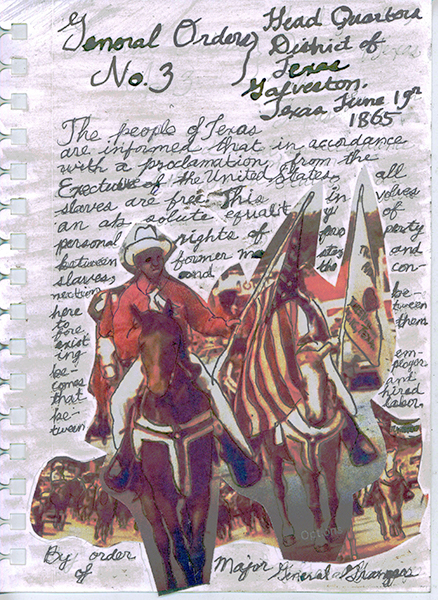 General Orders }
No. 3
Head Quarters
District of
Texas
Galveston,
Texas June 19th
1865
The people of Texas
are informed that in accordance
with a proclamation from the
Executive of the United States, all
slaves are free. This in volves
an ab solute equality of
personal rights of perty
between former ma and
slaves, and the con
nection be
here tween
to them
fore
exist
ing em-
be- ployer
comes and
that hired
be- labor.
tween
Options
By order Major General Granger
of